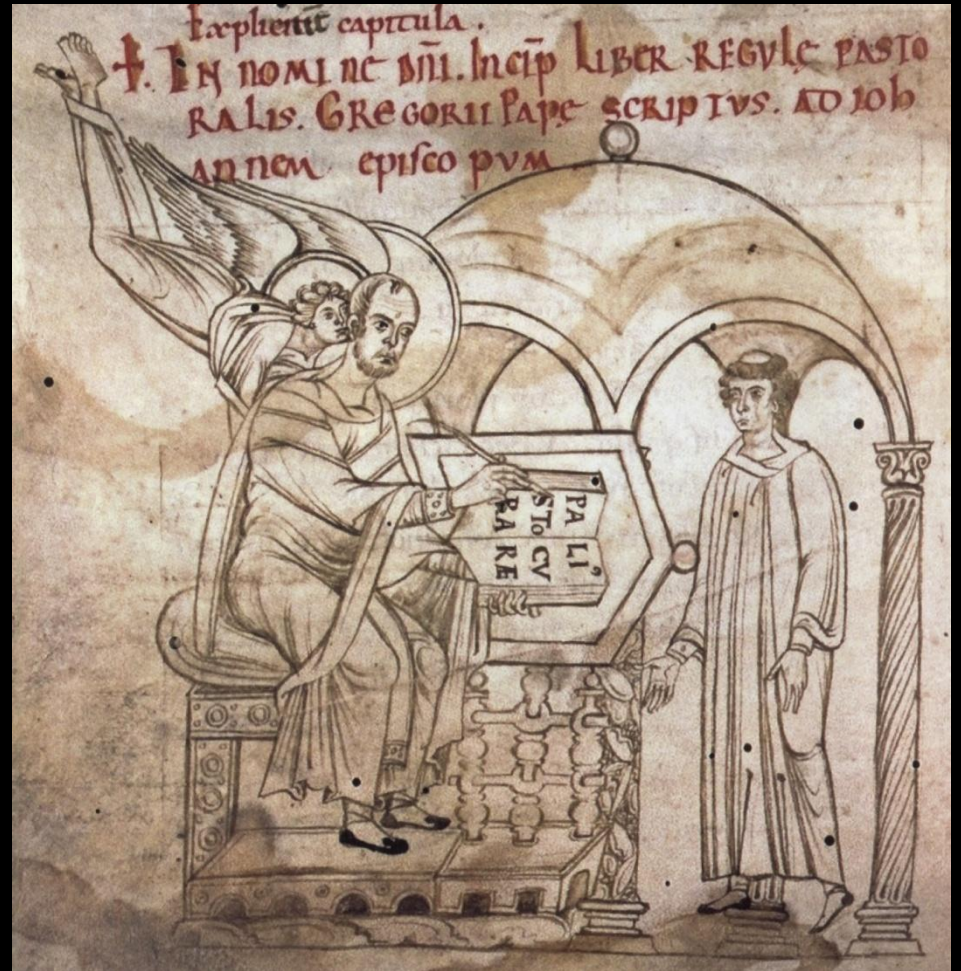 Expliciunt capitula .
✝. IN NOMINE DN̄I. Incip̄ LIBER REGVLĘ PASTO
RALIS. GREGORII PAPĘ SCRIPTVS. AD IOH
ANNEM episcopVM
PA LI
STO CV
RA RE